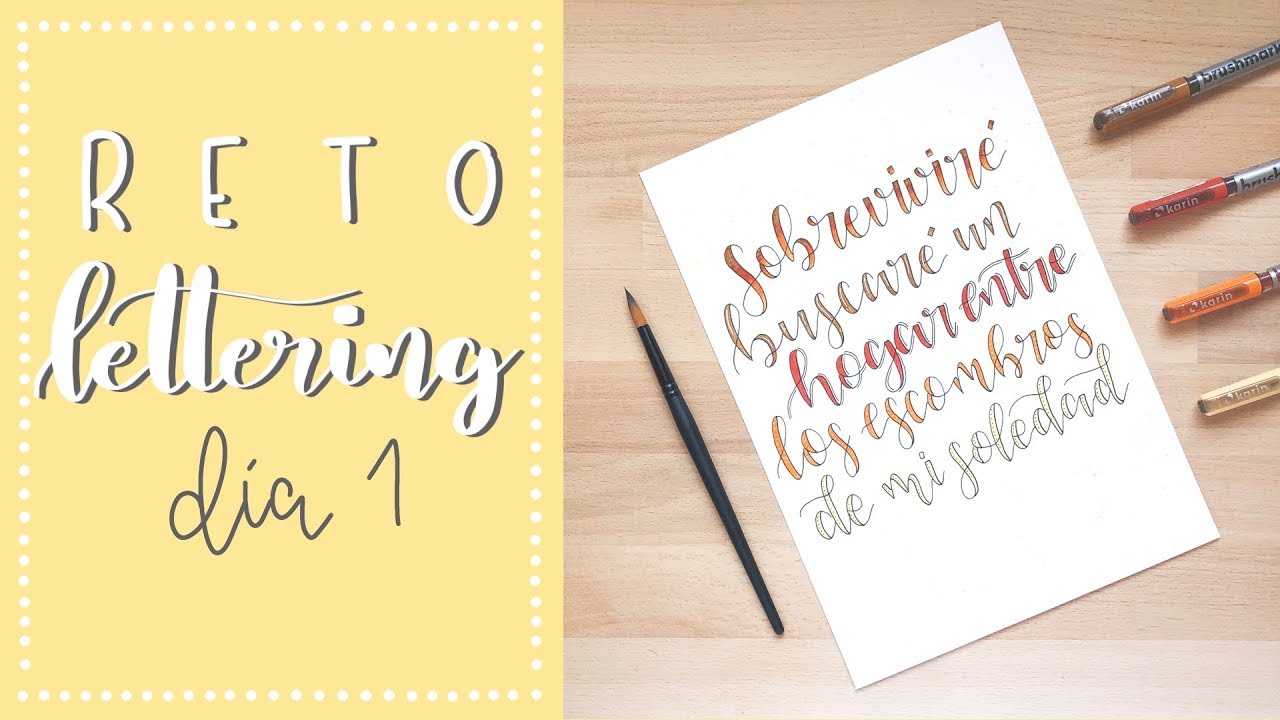 RETO
lettering
día 1
Sobreviviré
buscaré un
hogar entre
los escombros
de mi soledad
karin brushmark
karin brush
karin
karin